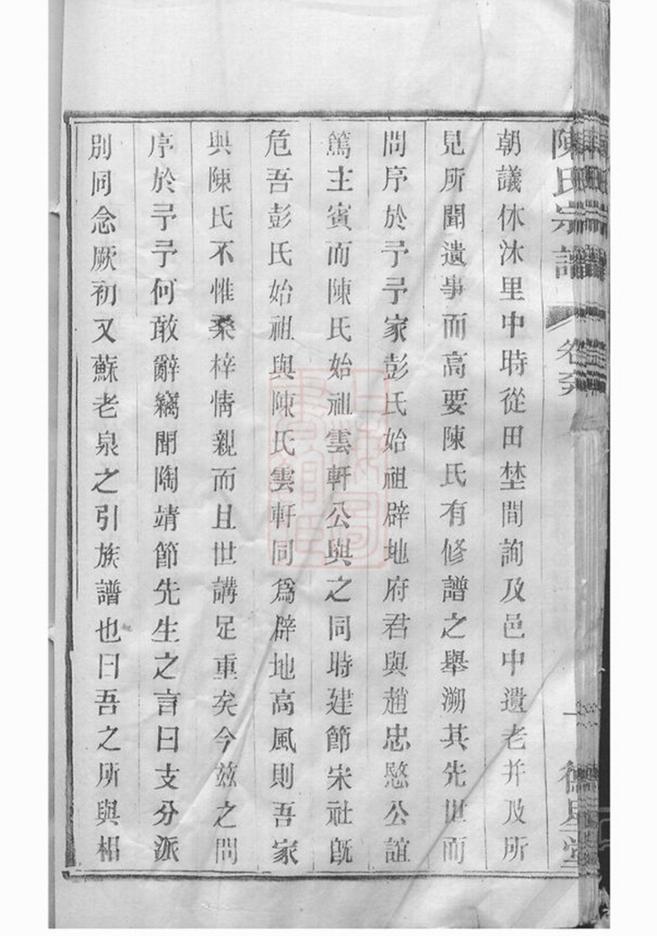 陳氏宗譜 卷
朝議休沐里中時從田埜間詢及邑中遺老并及所
見所聞遺事而高要陳氏有修譜之舉溯其先世而
問序於予予家彭氏始祖辟地府君與趙忠愍公誼
篤主賓而陳氏始祖雲軒公與之同時建節宋社旣
危吾彭氏始祖與陳氏雲軒同爲辟地高風則吾家
與陳氏不惟桑梓情親而且世講足重矣今兹之問
序於予予何敢辭竊聞陶靖節先生之言曰支分派
別同念厥初又蘇老泉之引族譜也曰吾之所與相